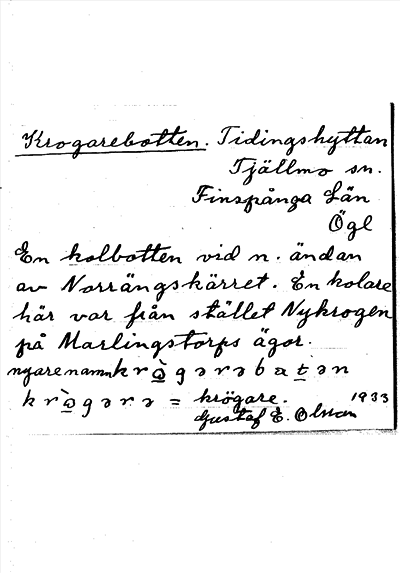 Krogarebotten. Tidingshyttan
Tjällmo sn.
Finspånga Län
Ögl
En kolbotten vid n. ändan
av Norrängskärret. En kolare
här var från stället Nykrogen
på Marlingstorps ägor.
nyare namn krò̠gərəbat̠ən
krò̠gərə = krögare. 1933
Gustaf E. Olsson